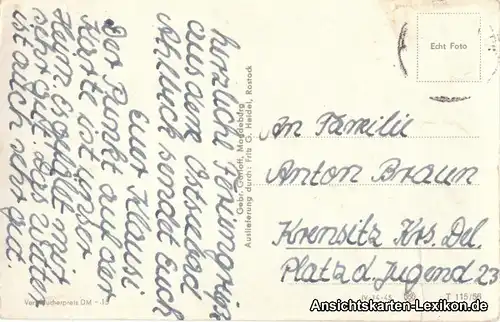 Herzliche Feriengrüße
aus dem Ostseebad
sendet Euch
Euer Klausi.
Der Punkt auf der
Karte ist unser
Heim es gefällt mir
sehr gut. Das Wetter
ist auch sehr gut.
Verbraucherpreis DM -.15
Gebr. Garloff, Magdeburg
Auslieferung durch: Fritz G. Heidel, Rostock
Echt Foto
An Familie
Anton Braun
Krensitz Krs. Del.
Platz d. Jugend 23
T 115/56
Ansichtskarten-Lexikon.de